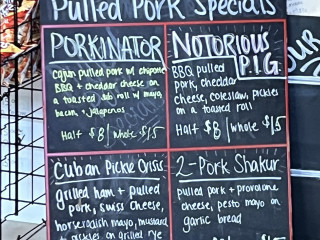 Pulled Pork Specials
PORKINATOR
Cajun pulled pork w/ chipotle
BBQ + cheddar cheese on
a toasted sub roll w/ mayo,
bacon + jalapenos
Half $8 / whole $15
NOTORIOUS
P.I.G.
BBQ pulled
pork, cheddar
cheese, coleslaw, pickles
on a toasted roll
Half $8 / whole $15
Cuban Pickle Crisis
grilled ham + pulled
pork, swiss cheese,
horseradish mayo, mustard
+ pickles on grilled rye
2-Pork Shakur
pulled pork + provolone
cheese, pesto mayo on
garlic bread
OUR